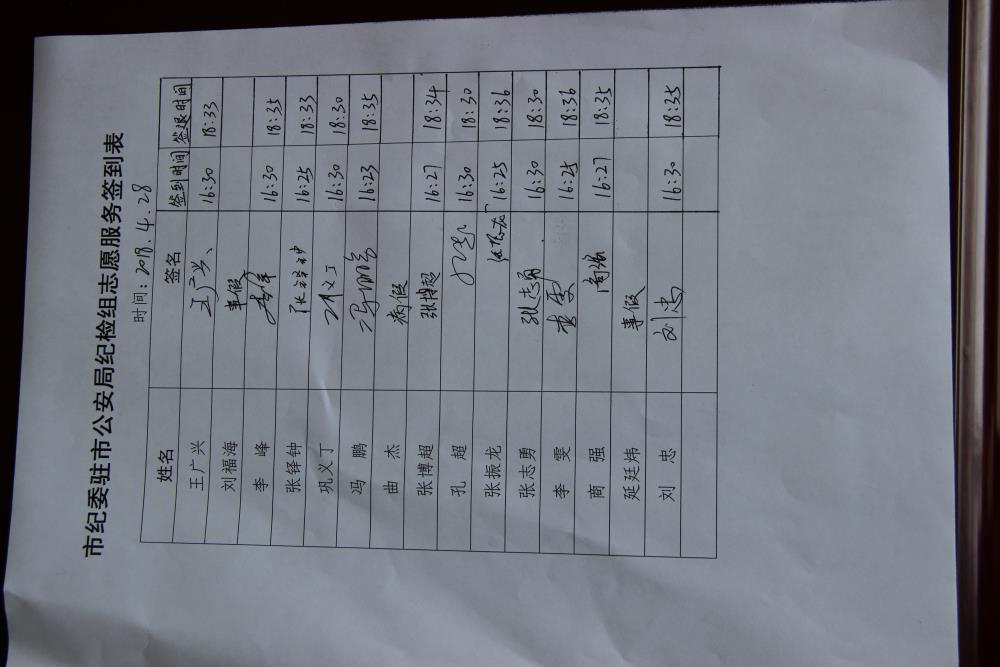 市纪委驻市公安局纪检组志愿服务签到表
时间：2018.4.28
姓名 签名 签到时间 签退时间
王广兴 王广兴 16:30 18:33
刘福海 事假
李峰 李峰 16:30 18:35
张铎钟 张铎钟 16:25 18:33
巩义丁 巩义丁 16:30 18:30
冯鹏 冯鹏 16:23 18:35
曲杰 病假
张博超 张博超 16:27 18:34
孔超 孔超 16:30 18:30
张振龙 张振龙 16:25 18:36
张志勇 张志勇 16:30 18:30
李雯 李雯 16:25 18:36
商强 商强 16:27 18:35
延廷炜 事假
刘忠 刘忠 16:30 18:35